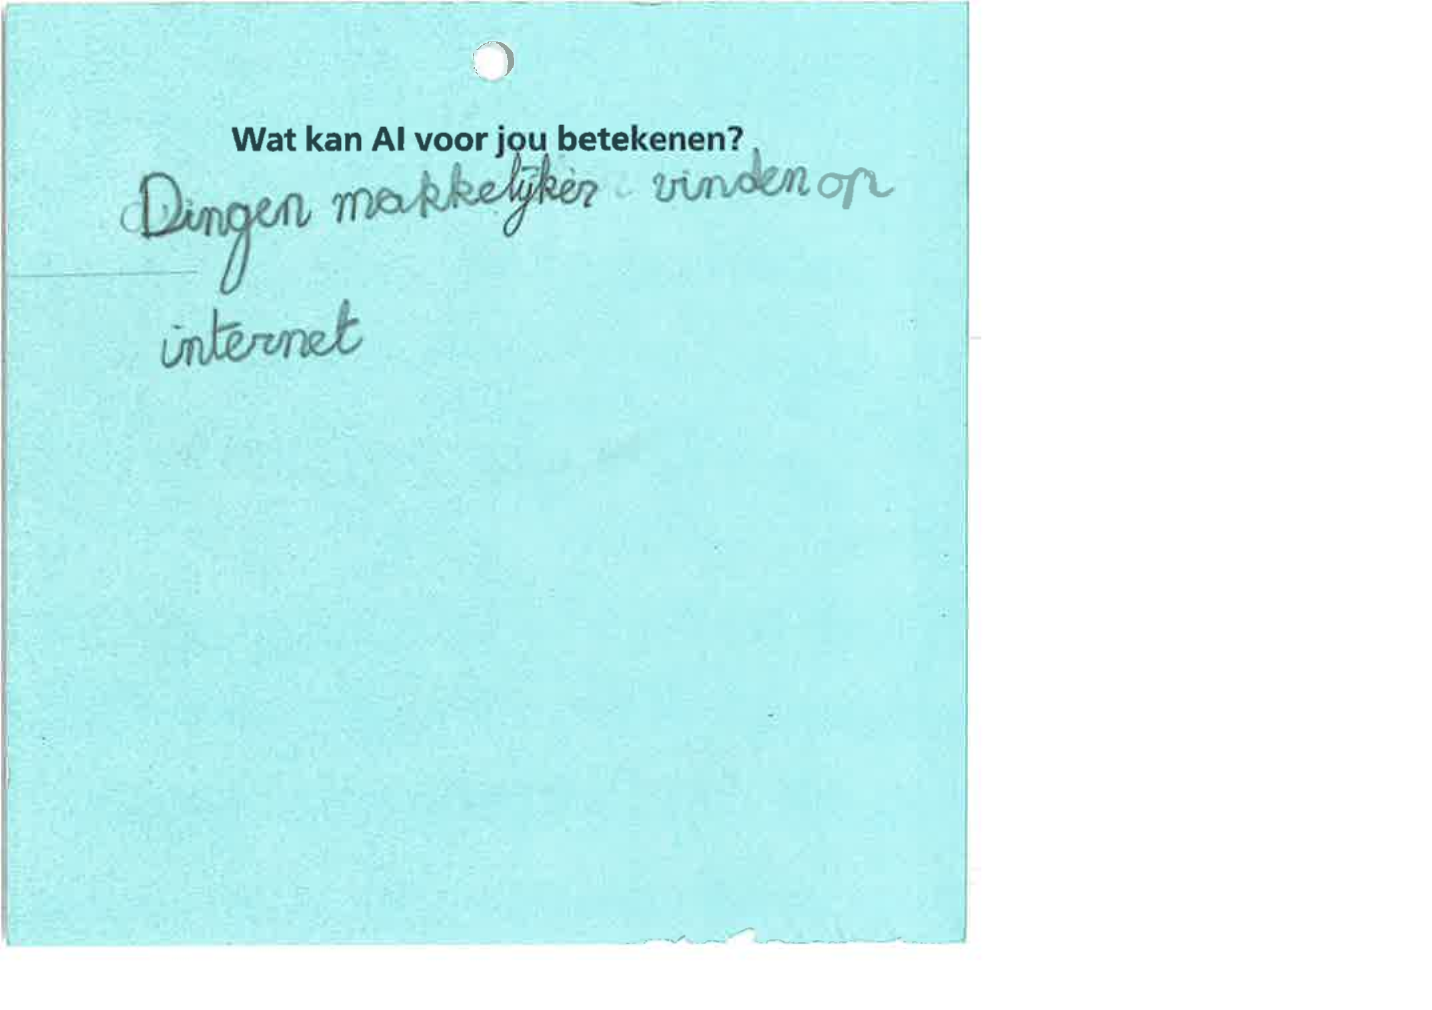 Wat kan AI voor jou betekenen?
Dingen makkelijker vinden op
internet